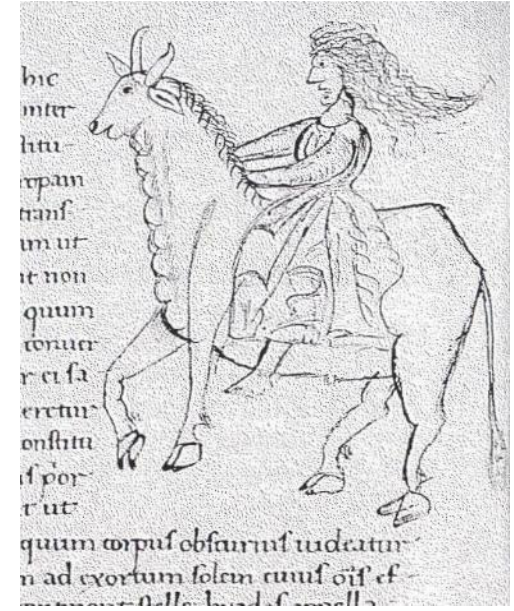 hic
inter
stitu-
ropam
tranſ
um ut
ut non
quum
conuer
r ei fa
eretur
onſtitu
ſ por
r ut
quum corpuſ obſcuriuſ uideatur
n ad exortum ſolem cuiuſ oiſ ef
ſtelle hyadaſ appella